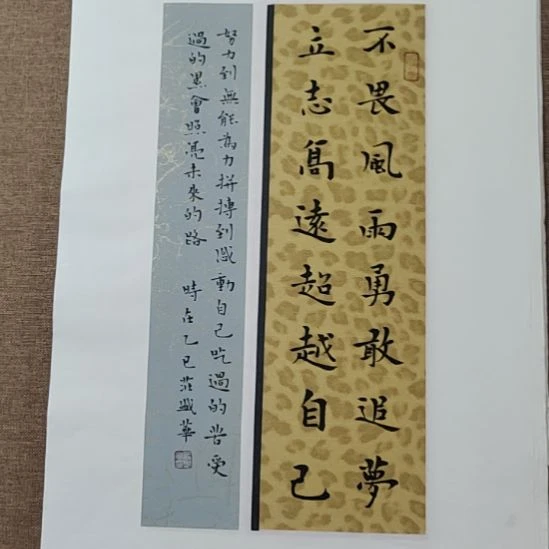 不畏風雨勇敢追夢
立志高遠超越自己
努力到無能為力拼搏到感動自己吃過的苦受
過的累會照亮未來的路 時在乙巳莊盛華